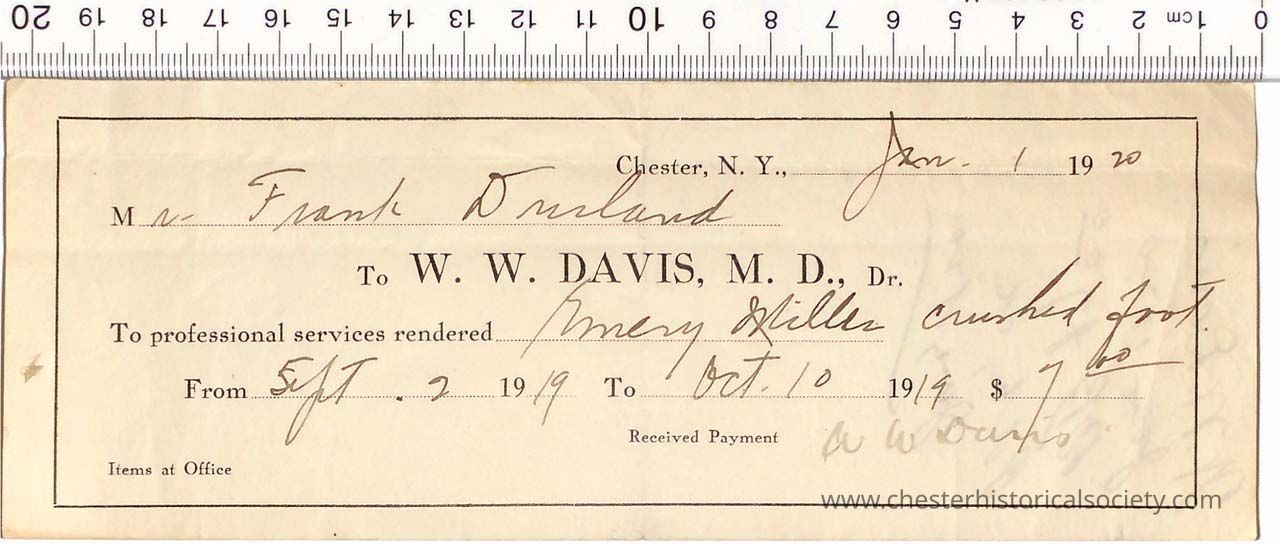 0 1cm 2 3 4 5 6 7 8 9 10 11 12 13 14 15 16 17 18 19 20
Chester, N. Y., Jan. 1 1920
Mr Frank Durland
To W. W. DAVIS, M. D., Dr.
To professional services rendered Emery Miller crushed foot.
From Sept. 2 1919 To Oct. 10 1919 $ 7 00
Received Payment W W Davis
Items at Office
www.chesterhistoricalsociety.com